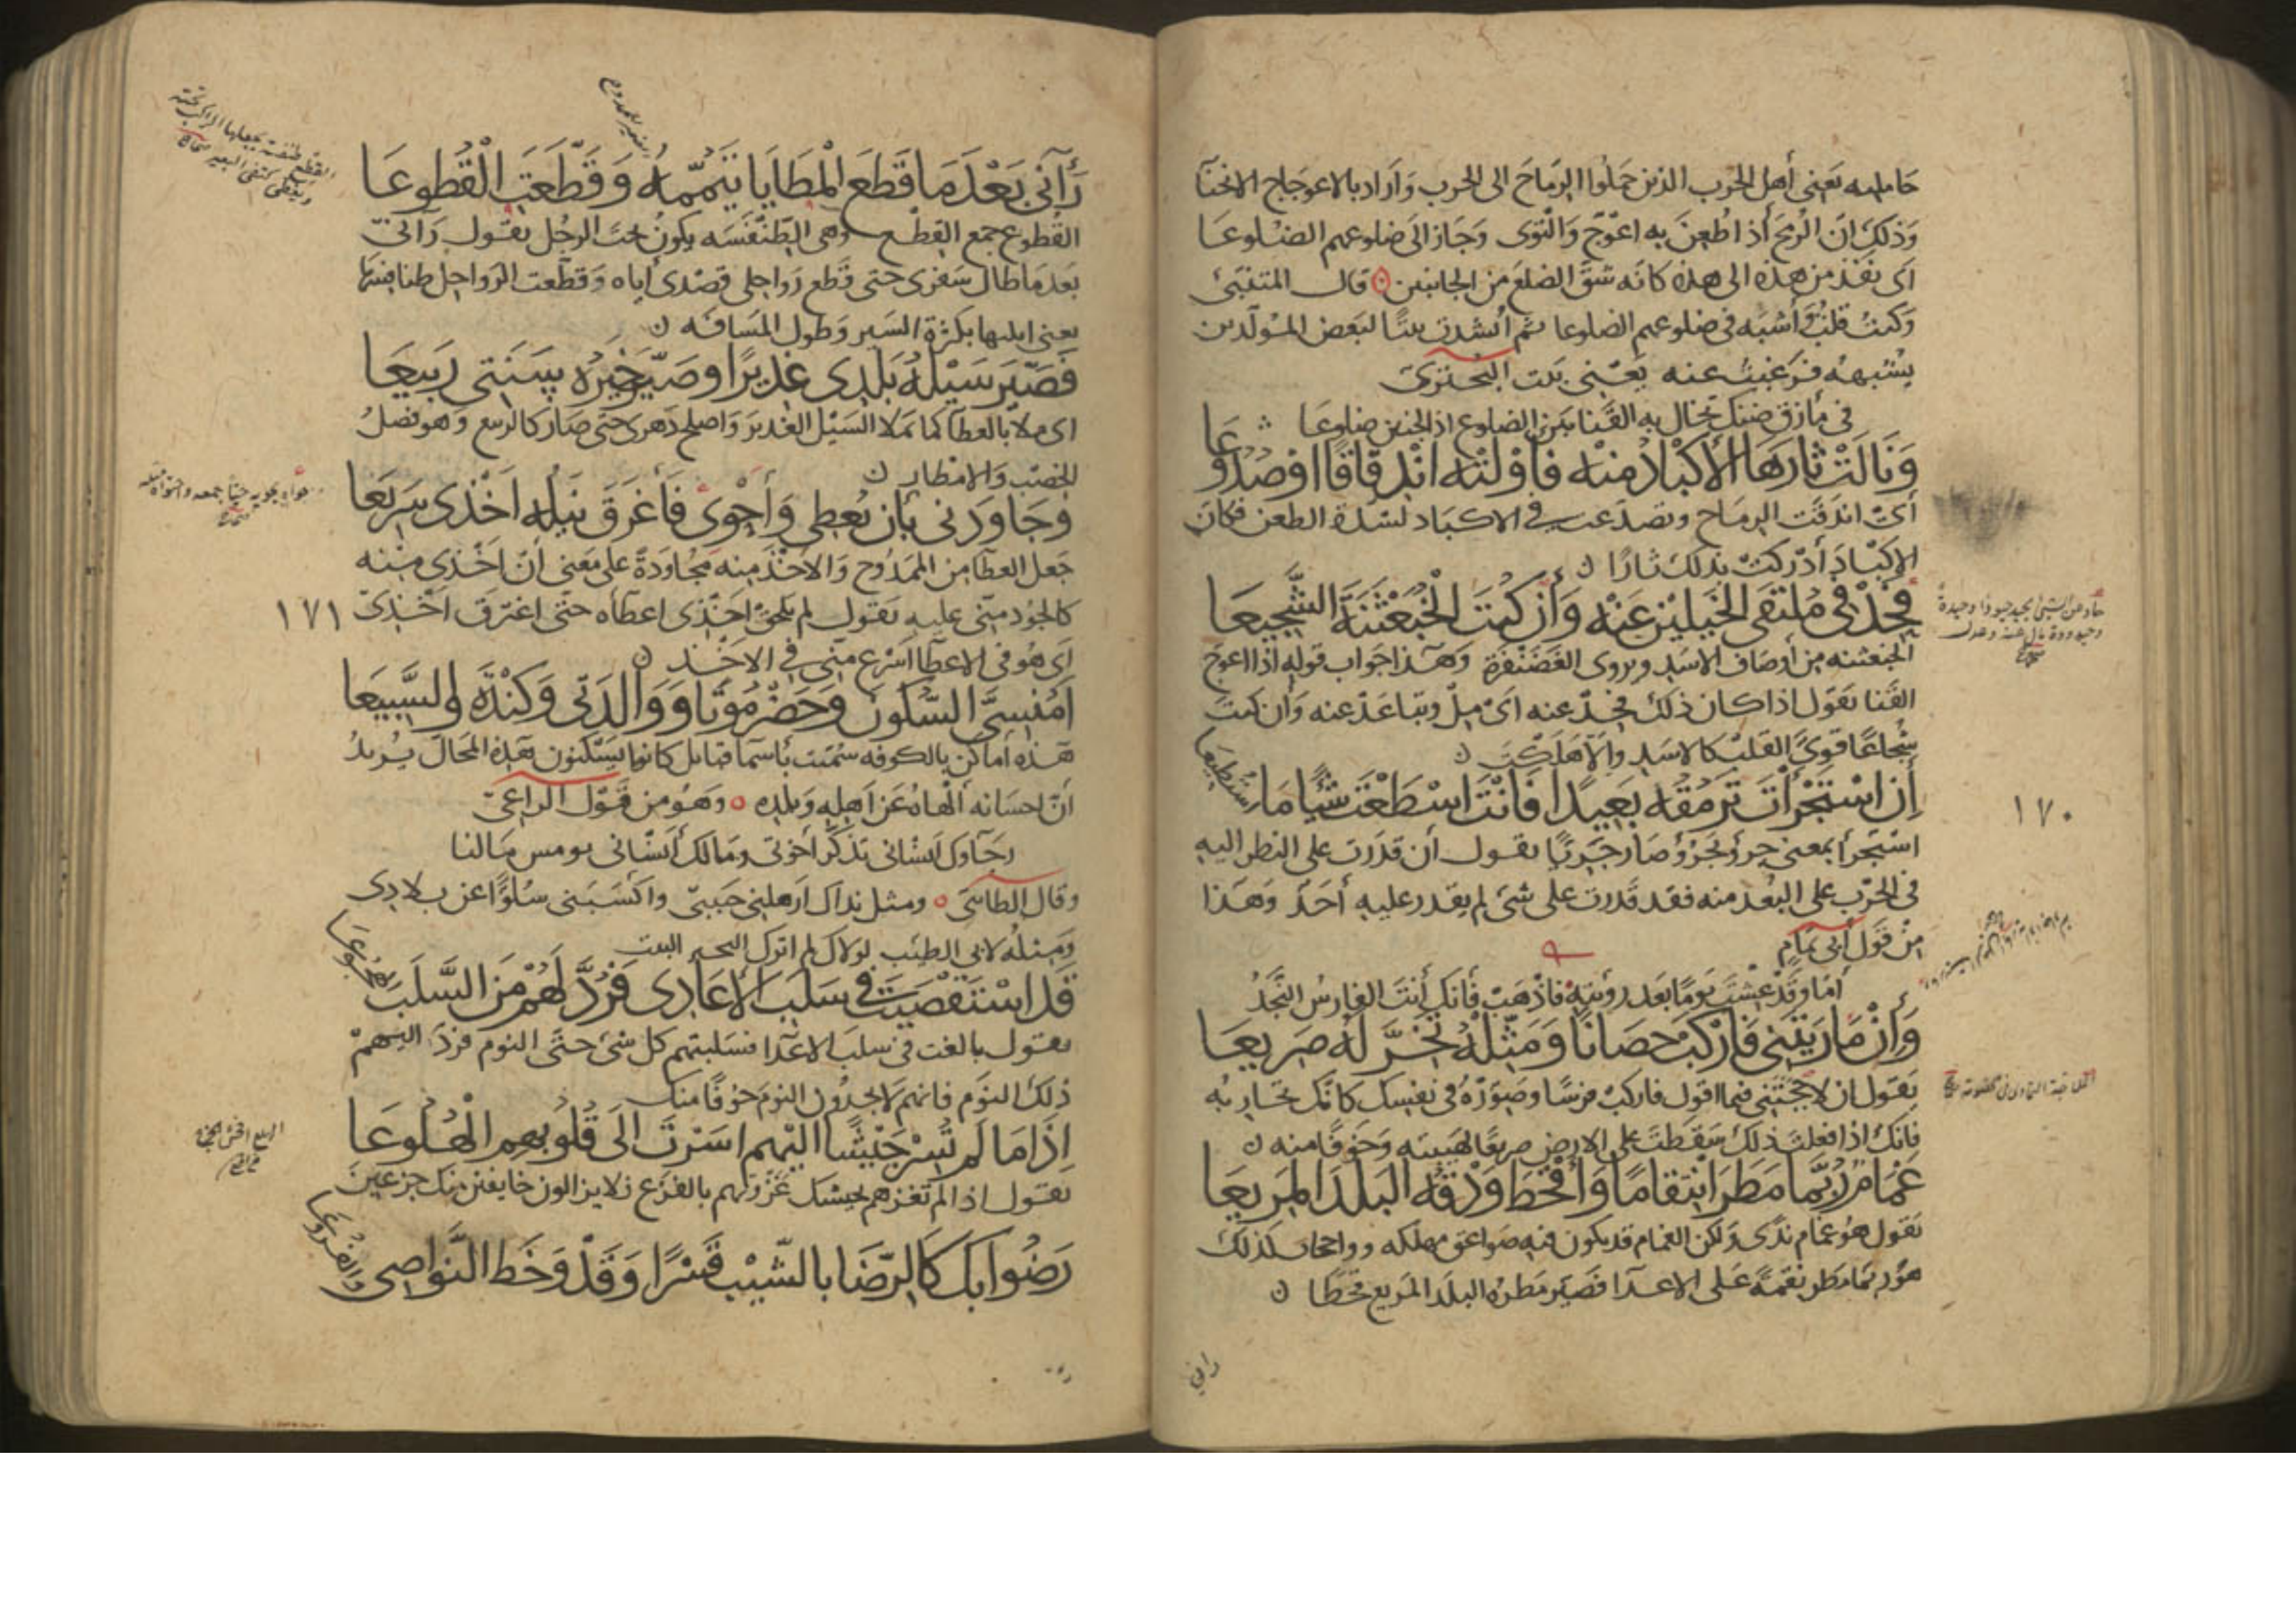 حامليه يعنى أهل الحرب الذين حملوا الرماح الى الحرب وأراد بالاعوجاج الانحنآ
وذلك ان الرمح اذا طعن به اعوج والتوى وجاز الى ضلوعهم الضلوعا
اى نفذ من هذه الى هذه كانه شق الضلع من الجانبين قال المتنبئ
وكنت قلت وأشبه فى ضلوعهم الضلوعا ثم أنشدت بيتا لبعض المولدين
يشبهه فرغبت عنه يعنى بيت البحترى
فى مأزق ضنك تخال به القنا بين الضلوع اذا انحنين ضلوعا
وَنَالَتْ ثَارَهَا الأَكْبَادُ مِنْهُ فَأَوْلَتْهُ انْدِقَاقًا اوْ صُدُوعَا
أى اندقت الرماح وتصدعت فى الاكباد لشدة الطعن فكان
الاكباد أدركت بذلك ثارا
فَحِدْ فى مُلْتَقَى الخَيْلَيْنِ عَنْهُ وَأَنْ كُنْتَ الْخُبَعْثِنَةَ الشَّجِيعَا
الخبعثنه من أوصاف الاسد ويروى الغضنفرة وهذا جواب قوله اذا اعوج
القنا يقول اذا كان ذلك فحد عنه اى مل وتباعد عنه وأن كنت
شجاعا قوى القلب كالاسد والا هلكت
أِنِ اسْتَجْرَأْتَ تَرْمُقُهُ بَعِيدًا فَانْتَ اسْطَعْتَ شَيْئًا مَا اسْتُطِيعَا
استجرأ بمعنى جرؤ يجرؤ وصار جريئا يقول أن قدرت على النظر اليه
فى الحرب على البعد منه فقد قدرت على شئ لم يقدر عليه أحد وهذا
من قول أبى تمام
أما وقد عشت يوما بعد رؤيته فاذهب فانك أنت الفارس النجد
وَأِنْ مَارَيْتَنِى فَارْكَبْ حِصَانًا وَمَثِّلْهُ تَخِرَّ لَهُ صَرِيعَا
يقول ان لاججتنى فيما اقول فاركب فرسا وصوره فى نفسك كانك تحاربه
فانك اذا فعلت ذلك سقطت على الارض صريعا لهيبته وخوفا منه
غَمَامٌ رُبَّمَا مَطَرَ انْتِقَامًا وَأَقْحَطَ وَدْقُهُ البَلَدَ المَرِيعَا
يقول هو غمام ندى ولكن الغمام قد يكون فيه صواعق مهلكه كذلك
هو ربما مطر نقمة على الاعدا فصير مطره البلد المريع قحطا
١٧٠
رَآنِى بَعْدَ مَا قَطَعَ الْمَطَايَا تَيَمُّمُهُ وَقَطَّعَتِ الْقُطُوعَا
القطوع جمع القطع وهى الطنفسه يكون تحت الرحل يقول رآنى
بعد ما طال سفرى حتى قطع رواحلى قصدى اياه وقطعت الرواحل طنافسها
يعنى ابلتها بكثرة السير وطول المسافه
فَصَيَّرَ سَيْلُهُ بَلَدِى غَدِيرًا وصَيَّرَ خَيْرُهُ سَنَتِى رَبِيعَا
اى ملأ بالعطآ كما يملا السيل الغدير واصلح دهرى حتى صار كالربيع وهو فصل
الخصب والامطار
وَجَاوَدَنِى بِأَنْ يُعْطِى وَأَحْوِى فَأَغْرَقَ نَيْلُهُ اَخْذِى سَرِيعَا
جعل العطآ من الممدوح والاخذ منه مجاودة على معنى أن اخذى منه
كالجود منى عليه يقول لم يلحق اخذى اعطآه حتى اغرق اخذى
اى هو فى الاعطآ اسرع منى فى الاخذ
١٧١
اَمُنْسِىَّ السَّكُونَ وَحَضْرَمَوْتًا وَوَالِدَتِى وَكِنْدَةَ والسَّبِيعَا
هذه اماكن بالكوفه سميت بأسما قبايل كانوا يسكنون هذه المحال يريد
أن احسانه ألهاه عن اهله وبلده وهو من قول الراعى
رجآوك أنسانى تذكر أخوتى ومالك أنسانى بوهبين ماليا
وقال الطائى ومثل نداك اذهلنى حبيبى واكسبنى سلوا عن بلادى
ومثله لابى الطيب لولاك لم اترك البحيرة البيت
قَدِ اسْتَقْصَيْتَ فى سَلَبِ الأَعَادِى فَرُدَّ لَهُمْ مِنَ السَّلَبِ الهُجُوعَا
يقول بالغت فى سلب الاعدا فسلبتهم كل شئ حتى النوم فرد اليهم
ذلك النوم فانهم لا يجدون النوم خوفا منك
اِذَا مَا لَمْ تُسِرْ جَيْشًا اِلَيْهِمْ اَسَرْتَ اِلَى قُلُوبِهِمِ الْهُلُوعَا
يقول اذا لم تغزهم بجيشك غزوتهم بالفزع فلا يزالون خايفين منك جزعين
رَضُوا بِكَ كَالرِّضَا بِالشَّيْبِ قَسْرًا وَقَدْ وَخَطَ النَّوَاصِى والفُرُوعَا